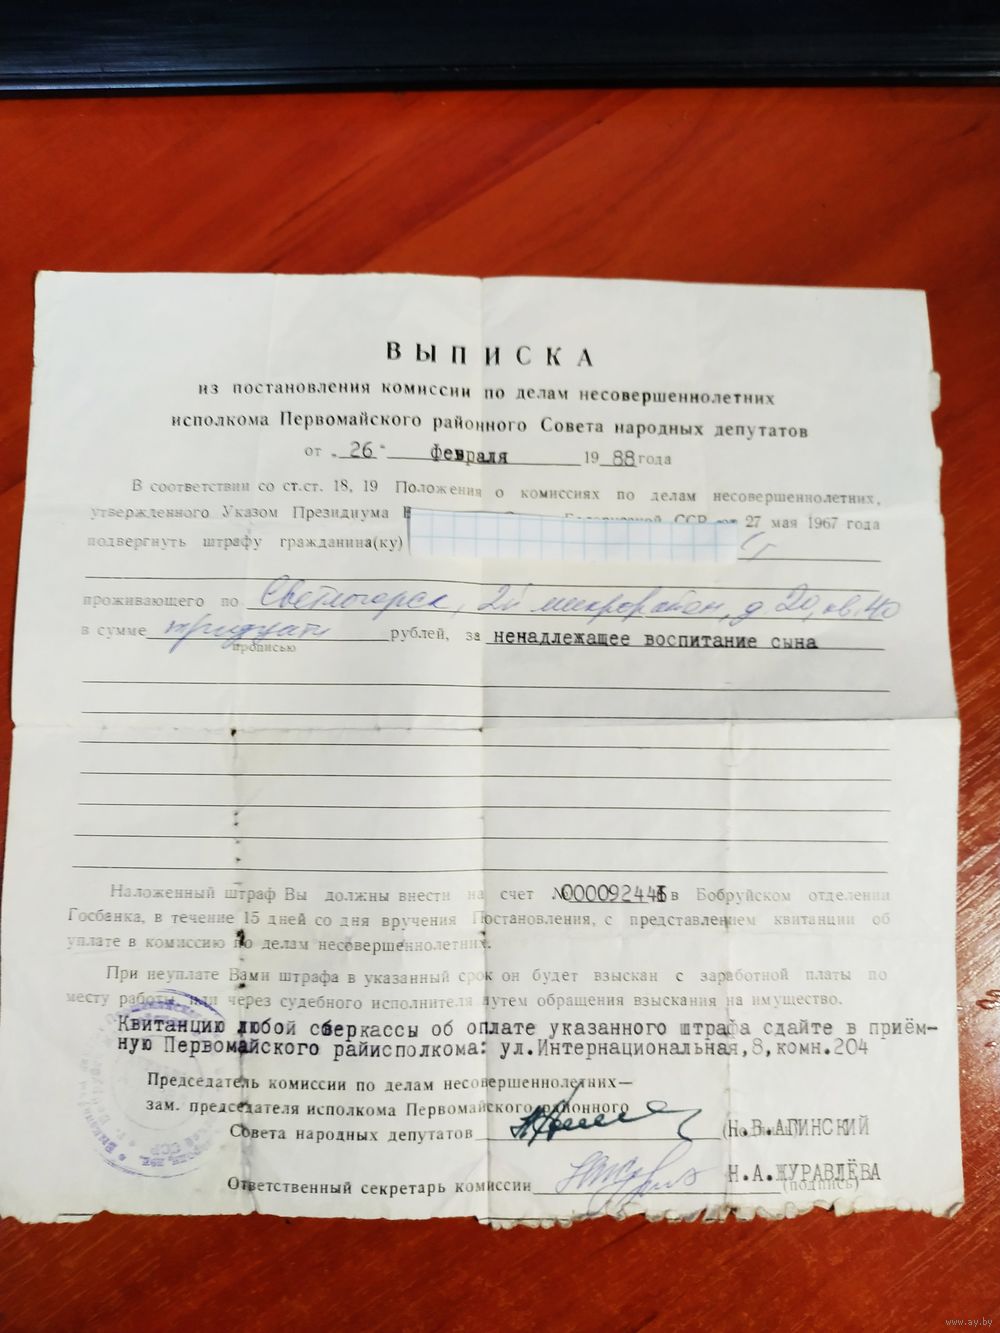 ВЫПИСКА
из постановления комиссии по делам несовершеннолетних
исполкома Первомайского районного Совета народных депутатов
от „26“ февраля 1988 года
В соответствии со ст.ст. 18, 19 Положения о комиссиях по делам несовершеннолетних,
утвержденного Указом Президиума Белорусской ССР от 27 мая 1967 года
подвергнуть штрафу гражданина(ку)
проживающего по Светлогорск, 2й микрорайон, д. 20, кв. 40
в сумме тридцати рублей, за ненадлежащее воспитание сына
прописью
Наложенный штраф Вы должны внести на счет №000092446 в Бобруйском отделении
Госбанка, в течение 15 дней со дня вручения Постановления, с представлением квитанции об
уплате в комиссию по делам несовершеннолетних.
При неуплате Вами штрафа в указанный срок он будет взыскан с заработной платы по
месту работы, или через судебного исполнителя путем обращения взыскания на имущество.
Квитанцию любой сберкассы об оплате указанного штрафа сдайте в приём-
ную Первомайского райисполкома: ул.Интернациональная,8,комн.204
Председатель комиссии по делам несовершеннолетних—
зам. председателя исполкома Первомайского районного
Совета народных депутатов (Н.В.АПИНСКИЙ
Ответственный секретарь комиссии Н.А.ЖУРАВЛЁВА
(подпись)
www.ay.by